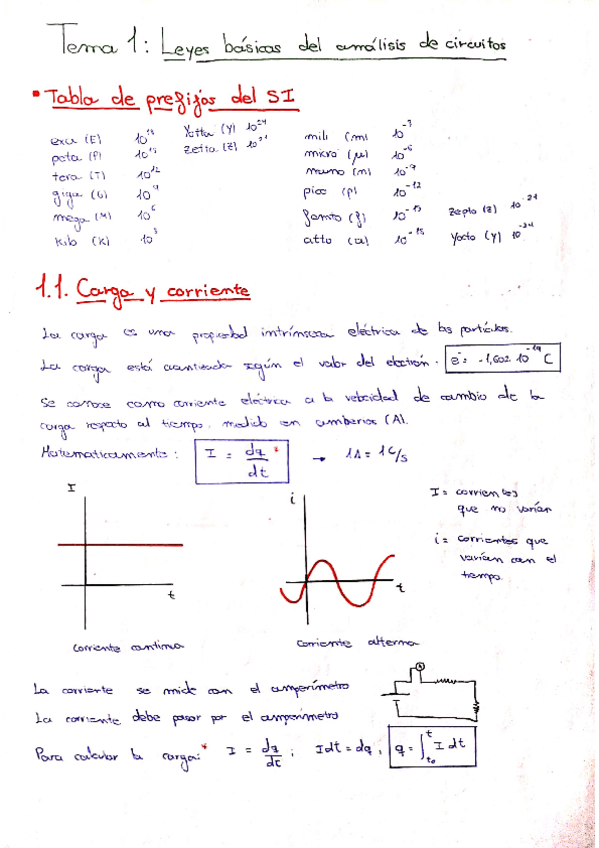 Tema 1: Leyes básicas del análisis de circuitos
• Tabla de prefijos del SI
exa (E) 10¹⁸ Yotta (Y) 10²⁴
peta (P) 10¹⁵ Zetta (Z) 10²¹
tera (T) 10¹²
giga (G) 10⁹
mega (M) 10⁶
kilo (K) 10³
mili (m) 10⁻³
micro (μ) 10⁻⁶
nano (n) 10⁻⁹
pico (p) 10⁻¹²
femto (f) 10⁻¹⁵ zepto (z) 10⁻²¹
atto (a) 10⁻¹⁸ yocto (y) 10⁻²⁴
1.1. Carga y corriente
La carga es una propiedad intrínseca eléctrica de las partículas.
La carga está cuantizada según el valor del electrón. e⁻ = -1,602·10⁻¹⁹ C
Se conoce como corriente eléctrica a la velocidad de cambio de la
carga respecto al tiempo, medido en amperios (A).
Matemáticamente: I = dq/dt * → 1A = 1C/s
I
t
corriente continua
i
t
corriente alterna
I = corrientes
que no varían
i = corrientes que
varían con el
tiempo.
La corriente se mide con el amperímetro
A
La corriente debe pasar por el amperímetro
Para calcular la carga:* I = dq/dt ; Idt = dq ; q = ∫ₜ₀ᵗ I dt